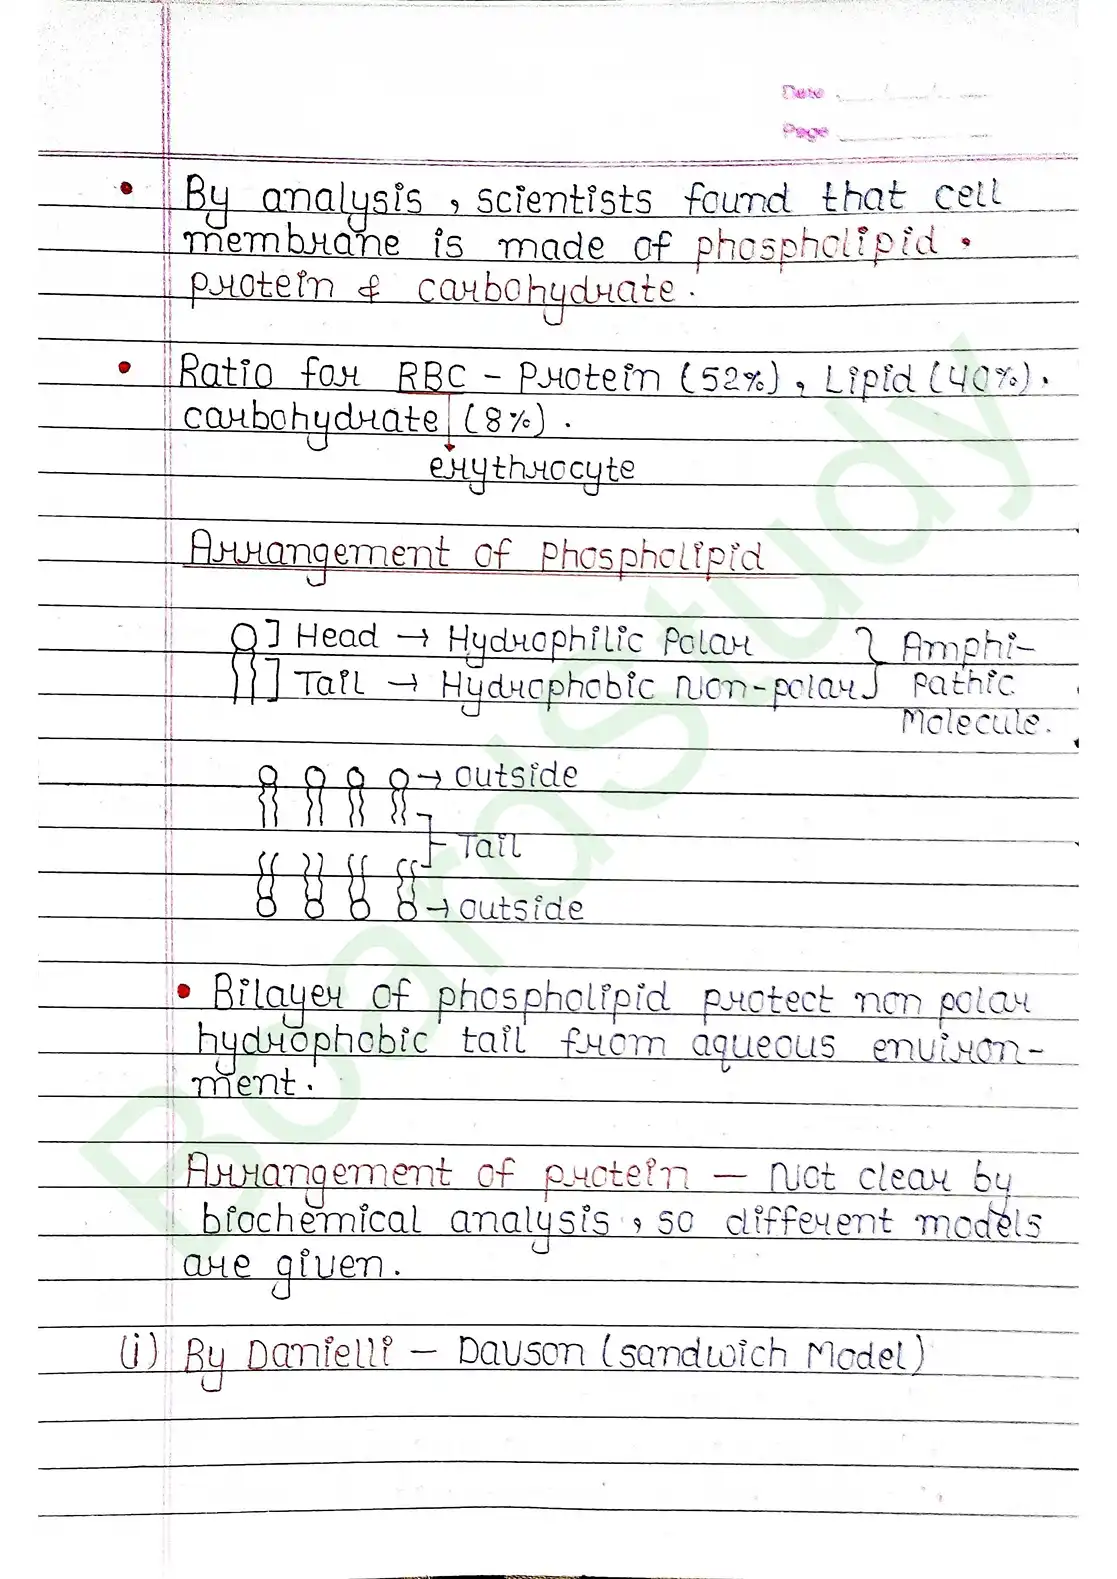 Date
Page
• By analysis, scientists found that cell
membrane is made of phospholipid.
protein & carbohydrate.
• Ratio for RBC - Protein (52%), Lipid (40%).
carbohydrate (8%).
erythrocyte
Arrangement of Phospholipid
Head → Hydrophilic Polar
Tail → Hydrophobic Non-polar
Amphi-
Pathic
Molecule.
→ outside
Tail
→ outside
• Bilayer of phospholipid protect non polar
hydrophobic tail from aqueous environ-
ment.
Arrangement of protein — Not clear by
biochemical analysis, so different models
are given.
(i) By Danielli - Davson (sandwich Model)
BoardStudy